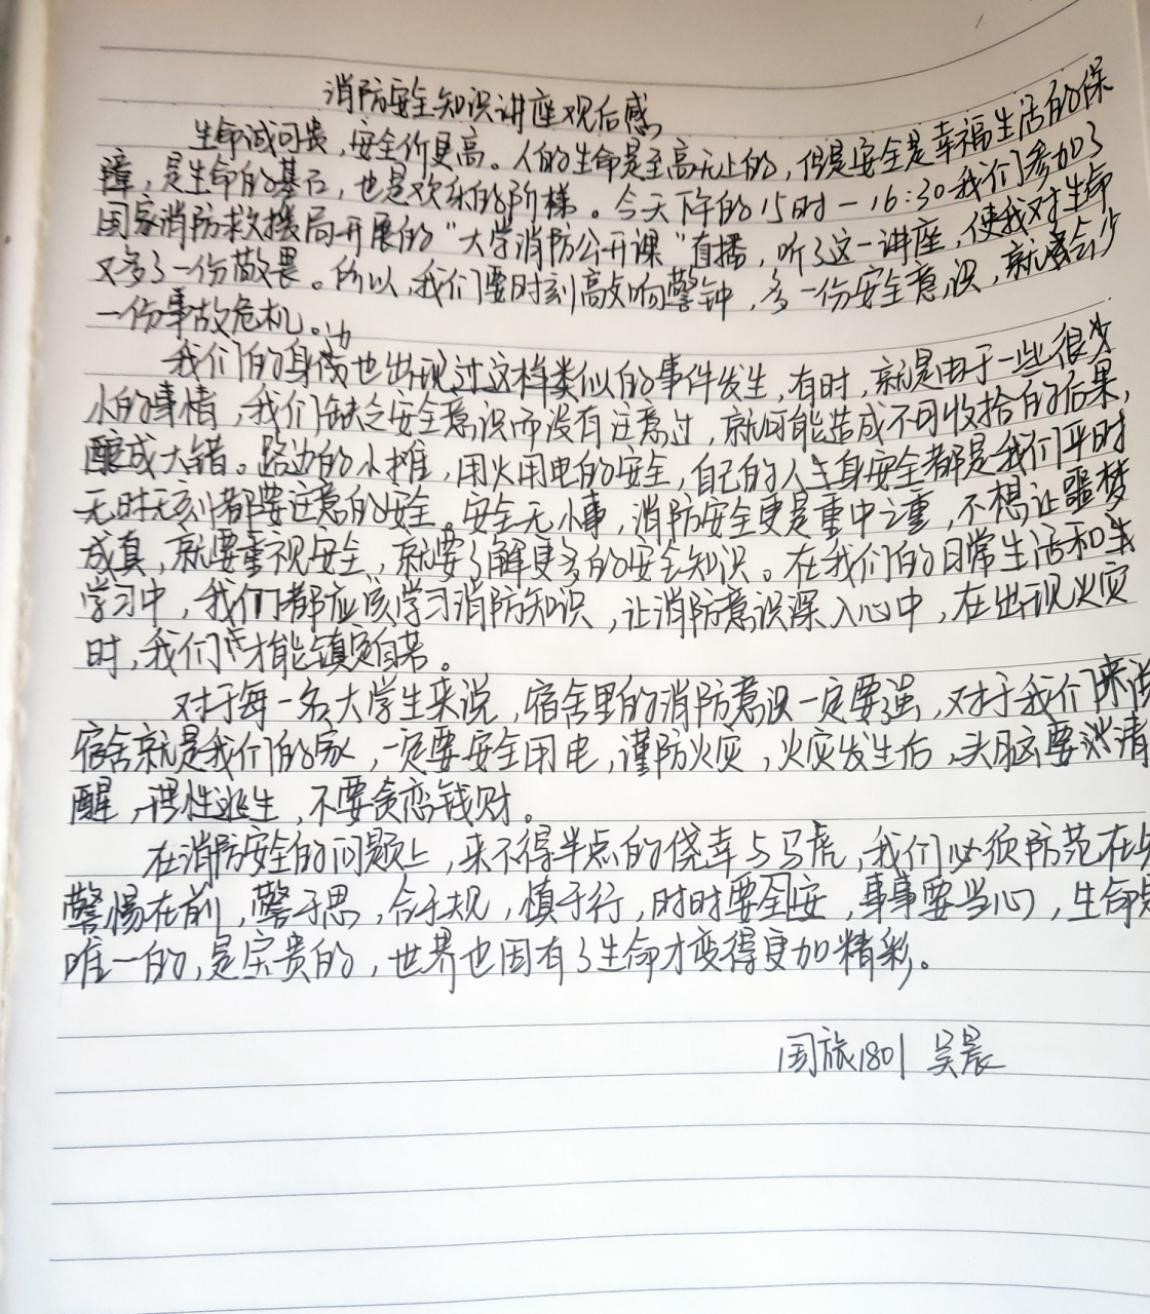 消防安全知识讲座观后感
生命诚可贵，安全价更高。人的生命是至高无上的，但是安全是幸福生活的保
障，是生命的基石，也是欢乐的阶梯。今天下午的15时一16:30我们参加了
国家消防救援局开展的“大学消防公开课”直播，听了这一讲座，使我对生命
又多了一份敬畏。所以，我们要时刻高效响警钟，多一份安全意识，就会少
一份事故危机。
我们的身边也出现过这样类似的事件发生，有时，就是由于一些很
小的事情，我们缺乏安全意识而没有注意过，就可能造成不可收拾的后果，
酿成大错。路边的小摊，用火用电的安全，自己的人生身安全都是我们平时
无时无刻都要注意的安全。安全无小事，消防安全更是重中之重，不想让噩梦
成真，就要重视安全，就要了解更多的安全知识。在我们的日常生活和
学习中，我们都应该学习消防知识，让消防意识深入心中，在出现火灾
时，我们才能镇定自若。
对于每一名大学生来说，宿舍里的消防意识一定要强，对于我们来说
宿舍就是我们的家，一定要安全用电，谨防火灾，火灾发生后，头脑要清
醒，理性逃生，不要贪恋钱财。
在消防安全的问题上，来不得半点的侥幸与马虎，我们必须防范在先
警惕在前，警于思，合于规，慎于行，时时要安全，事事要当心，生命是
唯一的，是宝贵的，世界也因有了生命才变得更加精彩。
国旅1801 吴晨